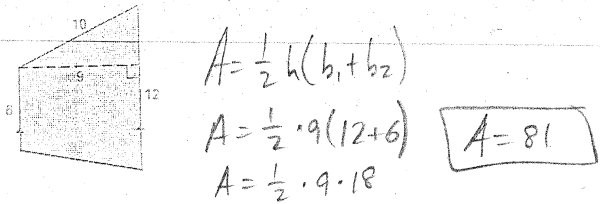 10
9
12
6
A = 1/2 h(b₁ + b₂)
A = 1/2 · 9(12+6)
A = 1/2 · 9 · 18
A = 81